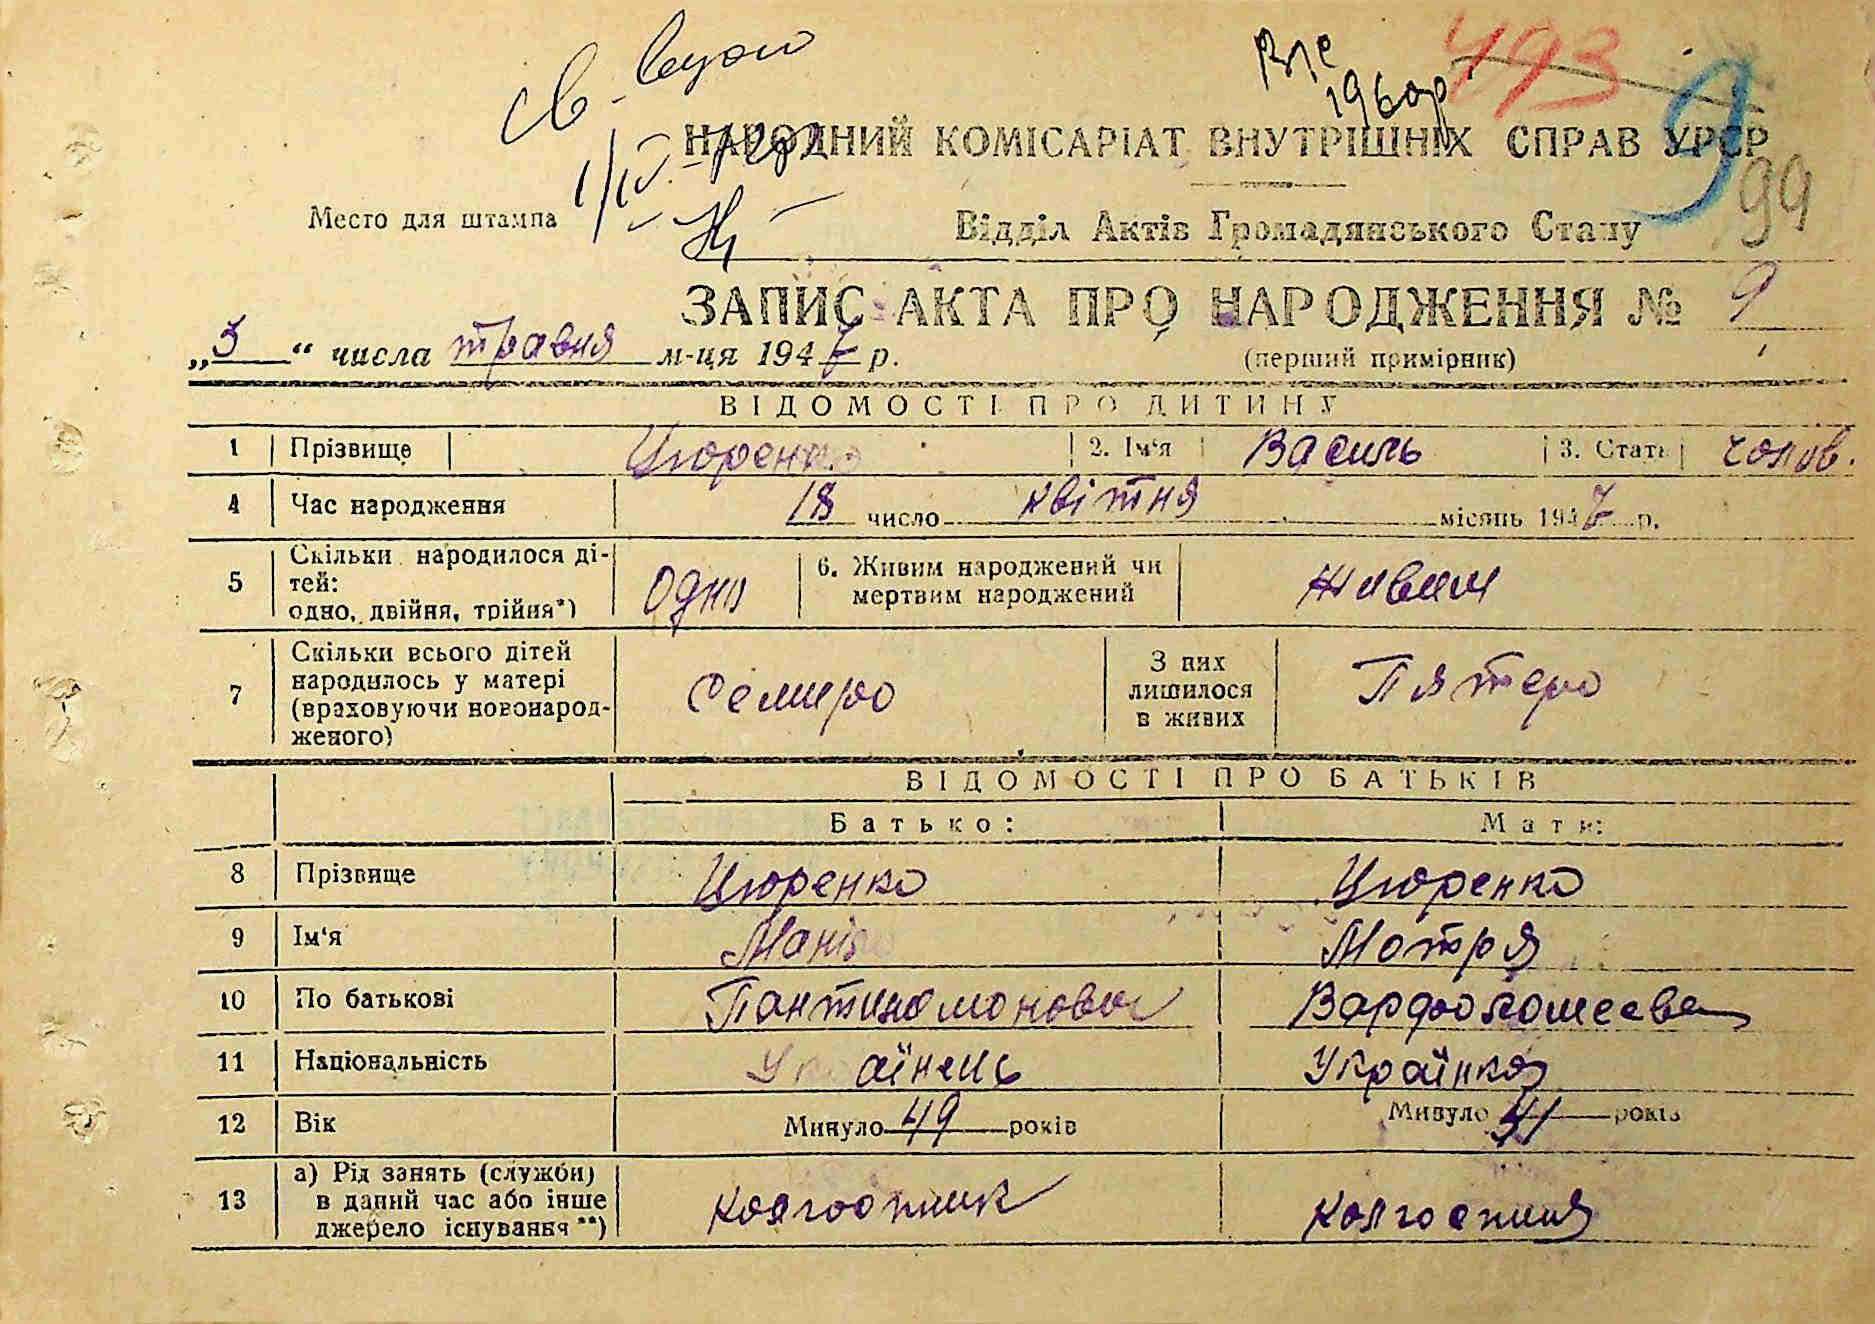 493
99
НАРОДНИЙ КОМІСАРІАТ ВНУТРІШНІХ СПРАВ УРСР
Место для штампа
Відділ Актів Громадянського Стану
ЗАПИС АКТА ПРО НАРОДЖЕННЯ № 9
„3“ числа травня м-ця 1947 р. (перший примірник)
ВІДОМОСТІ ПРО ДИТИНУ
1 Прізвище Цюренко 2. Ім‘я Василь 3. Стать чолов.
4 Час народження 18 число квітня місяць 1947 р.
5 Скільки народилося дітей: одно, двійня, трійня*) одно 6. Живим народжений чи мертвим народжений живим
7 Скільки всього дітей народилось у матері (враховуючи новонародженого) семеро З них лишилося в живих Пятеро
ВІДОМОСТІ ПРО БАТЬКІВ
Батько: Мати:
8 Прізвище Цюренко Цюренко
9 Ім‘я Мотря
10 По батькові Вардфоломеевна
11 Національність Українець Українка
12 Вік Минуло 49 років Минуло 41 років
13 а) Рід занять (служби) в даний час або інше джерело існування **) колгоспник колгоспниця